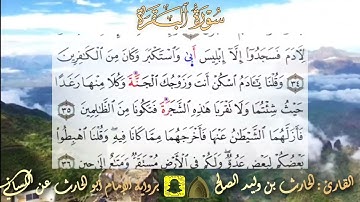 سورة البقرة
لِأَدَمَ فَسَجَدُوٓا۟ إِلَّآ إِبْلِيسَ أَبَىٰ وَٱسْتَكْبَرَ وَكَانَ مِنَ ٱلْكَٰفِرِينَ
٣٤ وَقُلْنَا يَٰٓـَٔادَمُ ٱسْكُنْ أَنتَ وَزَوْجُكَ ٱلْجَنَّةَ وَكُلَا مِنْهَا رَغَدًا
حَيْثُ شِئْتُمَا وَلَا تَقْرَبَا هَٰذِهِ ٱلشَّجَرَةَ فَتَكُونَا مِنَ ٱلظَّٰلِمِينَ ٣٥
فَأَزَلَّهُمَا ٱلشَّيْطَٰنُ عَنْهَا فَأَخْرَجَهُمَا مِمَّا كَانَا فِيهِ وَقُلْنَا ٱهْبِطُوا۟
بَعْضُكُمْ لِبَعْضٍ عَدُوٌّ وَلَكُمْ فِى ٱلْأَرْضِ مُسْتَقَرٌّ وَمَتَٰعٌ إِلَىٰ حِينٍ ٣٦
القارئ : الحارث بن وليد الصالح برواية الإمام أبو الحارث عن الكسائي